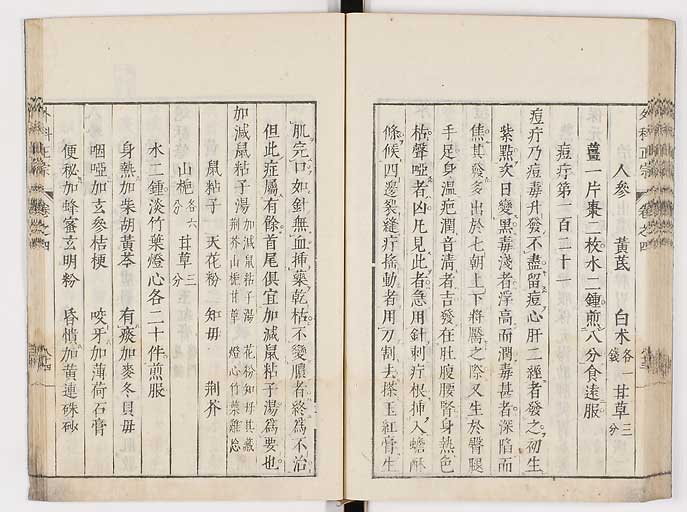 人參 黃茋 白朮各一錢 甘草三分
薑一片棗二枚水二鍾煎八分食遠服
痘疔第一百二十一
痘疔乃痘毒升發不盡留痘心肝二經者發之初生
紫點次日變黑毒淺者浮高而潤毒甚者深陷而
焦其發多出於七朝上下將靨之際又生於臀腿
手足身溫疤潤音清者吉發在肚腹腰腎身熱色
枯聲啞者凶凡見此者急用針刺疔根挿入蟾酥
條候四邊裂縫疔搖動者用刀割去搽玉紅膏生
肌完口如針無血挿藥乾枯不變膿者終爲不治
但此症屬有餘首尾俱宜加減鼠粘子湯爲要也
加減鼠粘子湯 加減鼠粘子湯 花粉知母其
荆芥山梔甘草 燈心竹葉
鼠粘子 天花粉 知母 荆芥
山梔各六分 甘草三分
水二鍾淡竹葉燈心各二十件煎服
身熱加柴胡黃芩 有痰加麥冬貝母
咽啞加玄參桔梗 咬牙加薄荷石膏
便秘加蜂蜜玄明粉 昏憒加黃連硃砂
外科正宗 卷之四